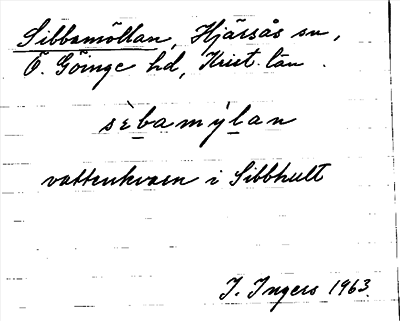 Sibbamöllan, Hjärsås sn,
Ö. Göinge hd, Krist. län.
sèbamỳlan
vattenkvarn i Sibbhult
I. Ingers 1963.